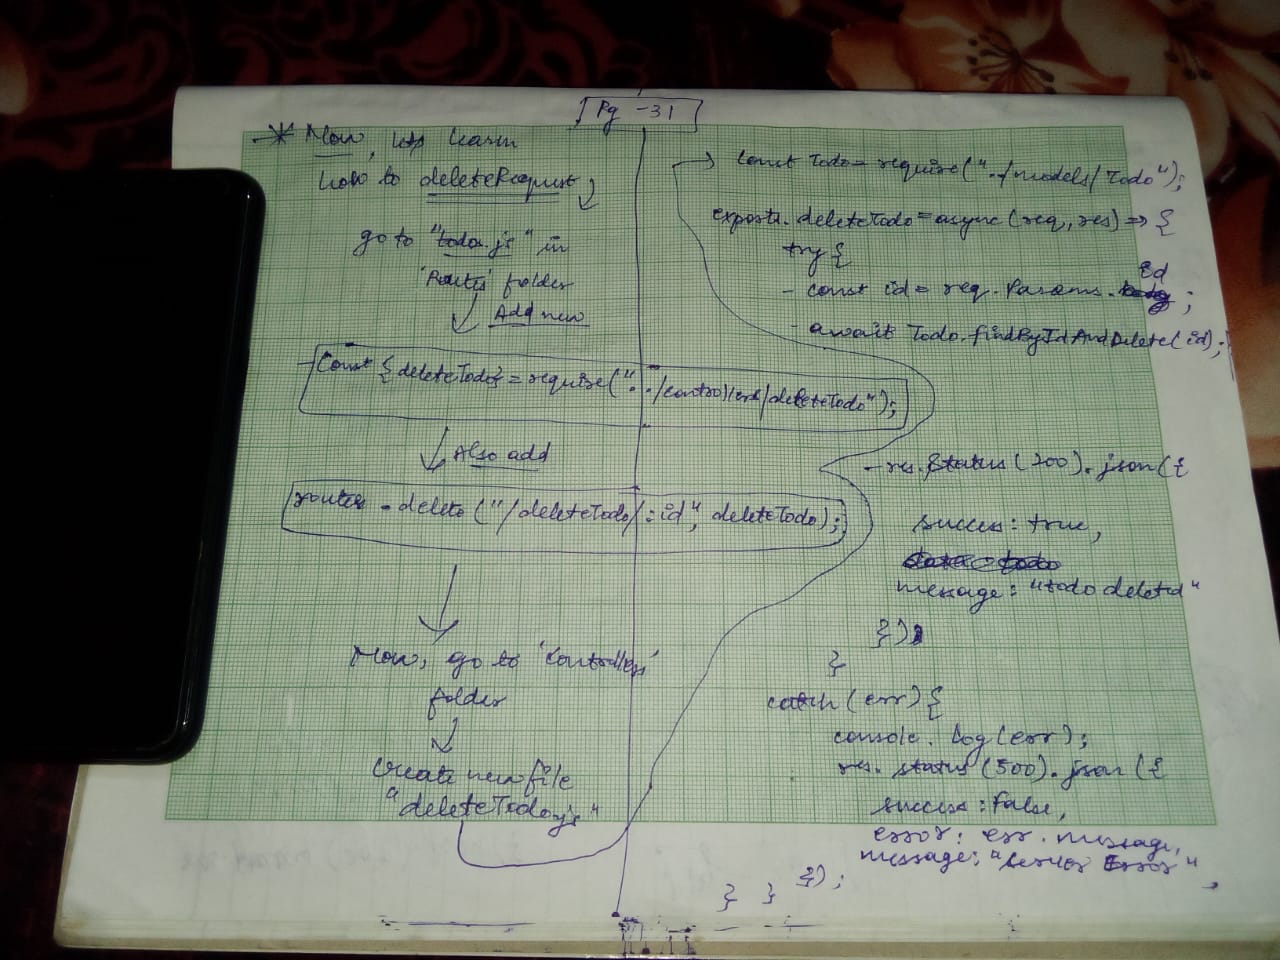 Pg - 31
* Now, lets learn
how to deleteRequest
go to "todo.js" in
'Routes' folder
Add new
- Const {deleteTodo} = require("../controllers/deleteTodo");
Also add
router.delete("/deleteTodo/:id", deleteTodo);
Now, go to 'Controllers'
folder
Create new file
"deleteTodo.js"
const Todo = require("../models/Todo");
exports.deleteTodo = async(req, res) => {
try {
- const id = req.Params.id;
- await Todo.findByIdAndDelete(id);
- res.status(200).json({
success: true,
message: "todo deleted"
});
}
catch(err) {
console.log(err);
res.status(500).json({
success: False,
error: err.message,
message: "Server Error",
});
} }